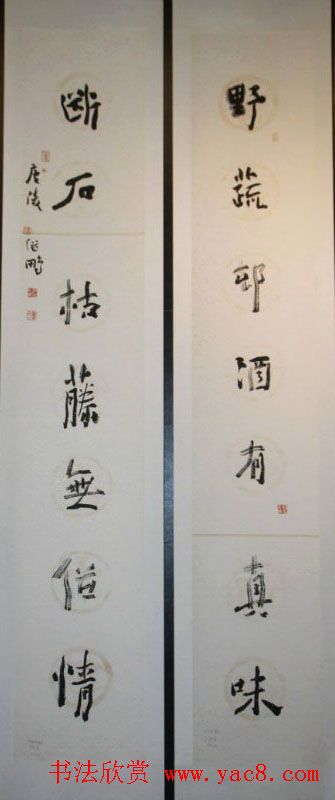 野蔬邨酒有真味
断石枯藤無俗情
书法欣赏 www.yac8.com